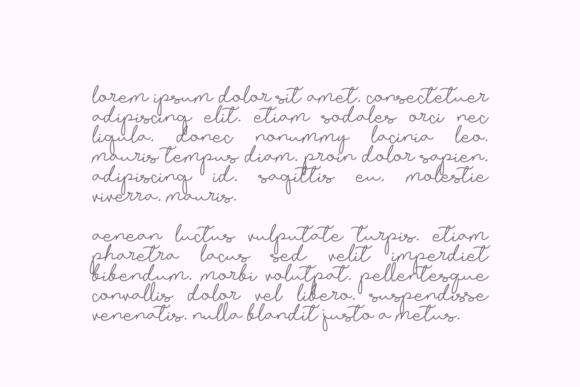 lorem ipsum dolor sit amet, consectetuer
adipiscing elit. etiam sodales orci nec
ligula. donec nonummy lacinia leo.
mauris tempus diam. proin dolor sapien,
adipiscing id, sagittis eu, molestie
viverra, mauris.
aenean luctus vulputate turpis. etiam
pharetra lacus sed velit imperdiet
bibendum. morbi volutpat. pellentesque
convallis dolor vel libero. suspendisse
venenatis. nulla blandit justo a metus.